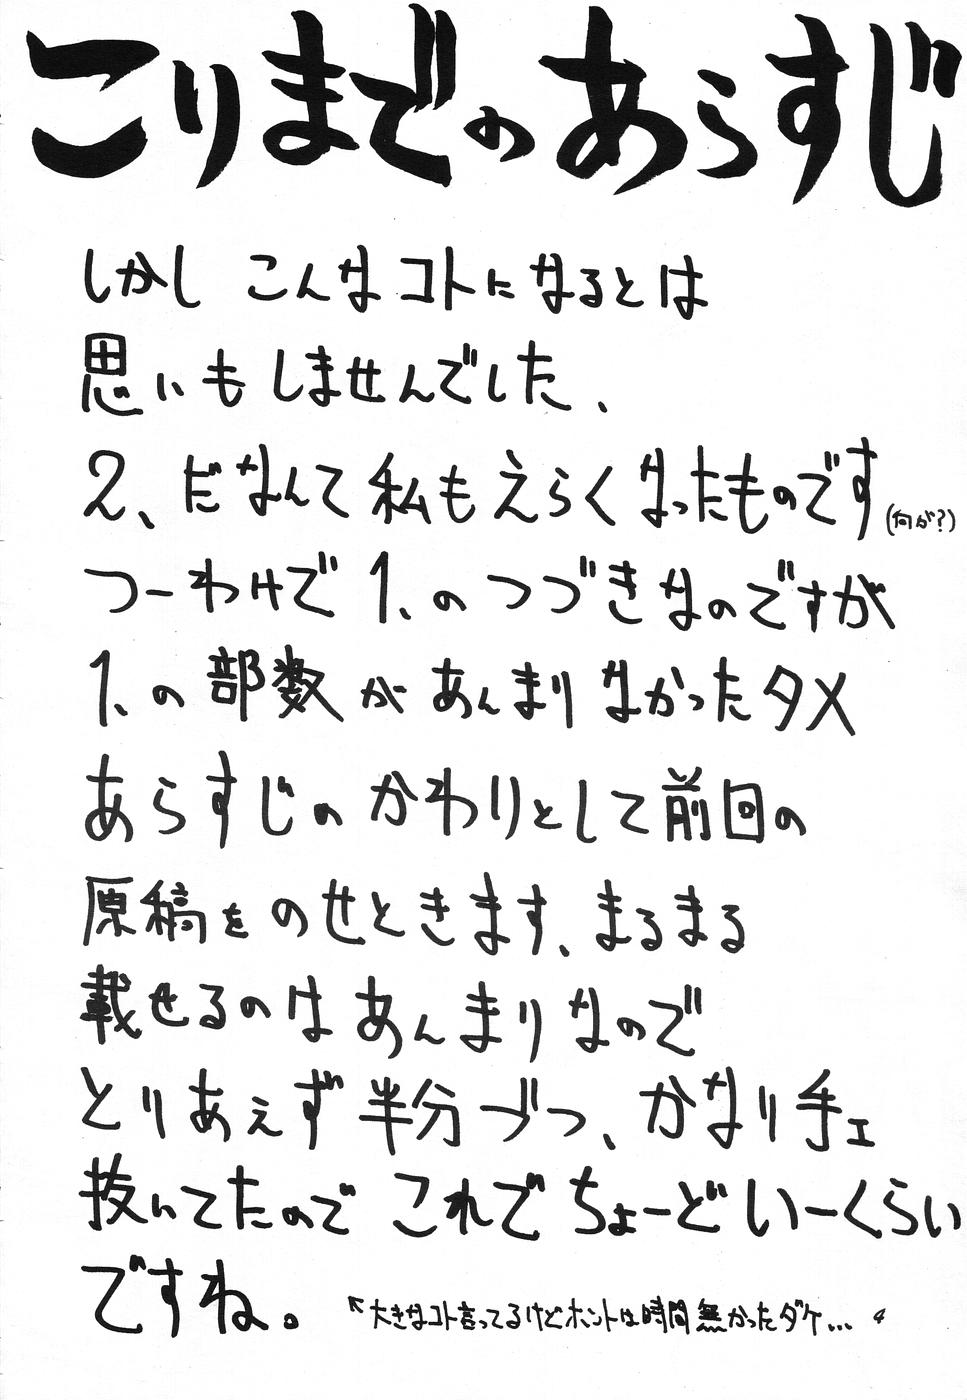 こりまでのあらすじ
しかし こんなコトになるとは
思いもしませんでした、
2、だなんて私もえらくなったものです(何が?)
つーわけで1、のつづきなのですが
1、の部数があんまりなかったタメ
あらすじのかわりとして前回の
原稿をのせときます、まるまる
載せるのはあんまりなので
とりあえず半分づつ、かなり手ェ
抜いてたのでこれでちょーどいーくらい
ですね。
↖大きなコト言ってるけどホントは時間無かったダケ…
4